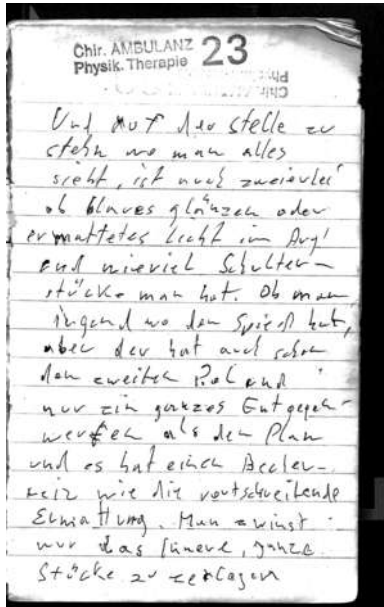 Chir. AMBULANZ 23
Physik. Therapie
Und auf der stelle zu
stehn wo man alles
sieht, ist auch zweierlei
ob blaues glänzen oder
ermattetes licht im Aug'
und wieviel Schulter-
stücke man hat. Ob man
irgend wo den Spieß hat,
aber der hat auch schon
den zweiten Pol und
nur ein ganzes Entgegen-
werfen als den Plan
und es hat einen
reiz wie die
Ermattung. Man zwingt
nur das Innere, ganze
Stücke zu zerlegen